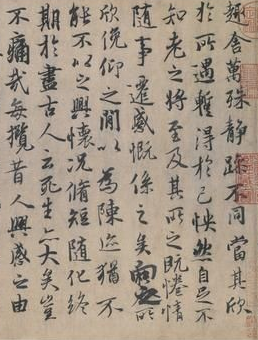 趣舍萬殊靜躁不同當其欣
於所遇蹔得於己怏然自足不
知老之將至及其所之既惓情
隨事遷感慨係之矣向之所
欣俛仰之閒以為陳迹猶不
能不以之興懷況脩短隨化終
期於盡古人云死生亦大矣豈
不痛哉每攬昔人興感之由